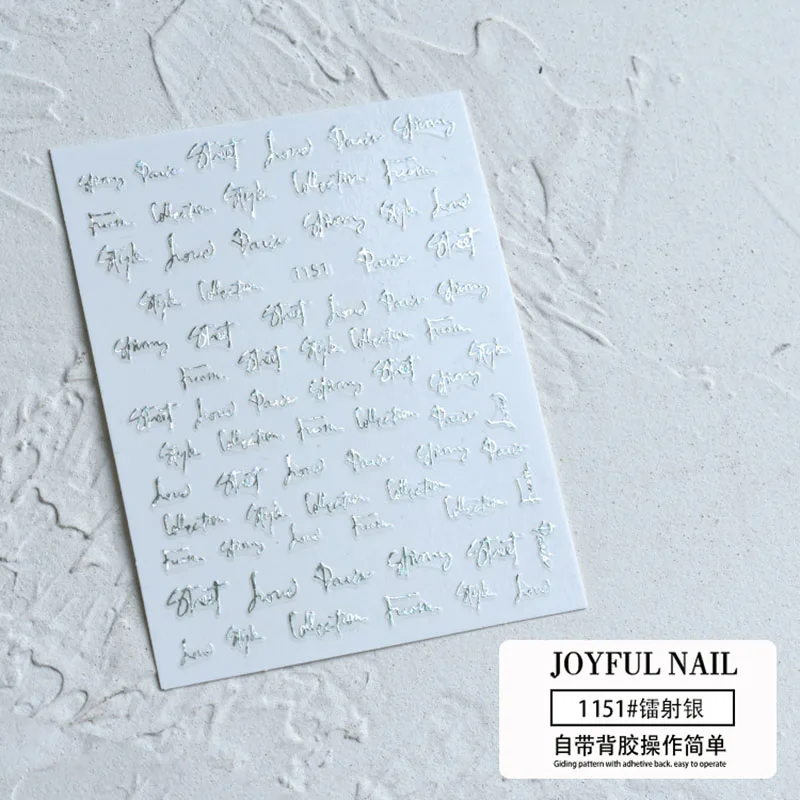 Spring Paris Street Love Paris Spring
From Collection Style Collection From
Style Love Paris Spring Style Love
Style Collection 1151 Paris Street
Spring Street Street Love Paris Spring
From Street Style Collection From
Street Love Paris Spring Street Spring Style
Style Collection From Collection Paris
Love Street Love Paris Spring Paris
Collection Style Collection Collection Collection From
From Spring Love From
Street Love Paris Spring Street Paris
Love Style Collection From Style Love
JOYFUL NAIL
1151#镭射银
自带背胶操作简单
Giding pattern with adhetive back. easy to operate